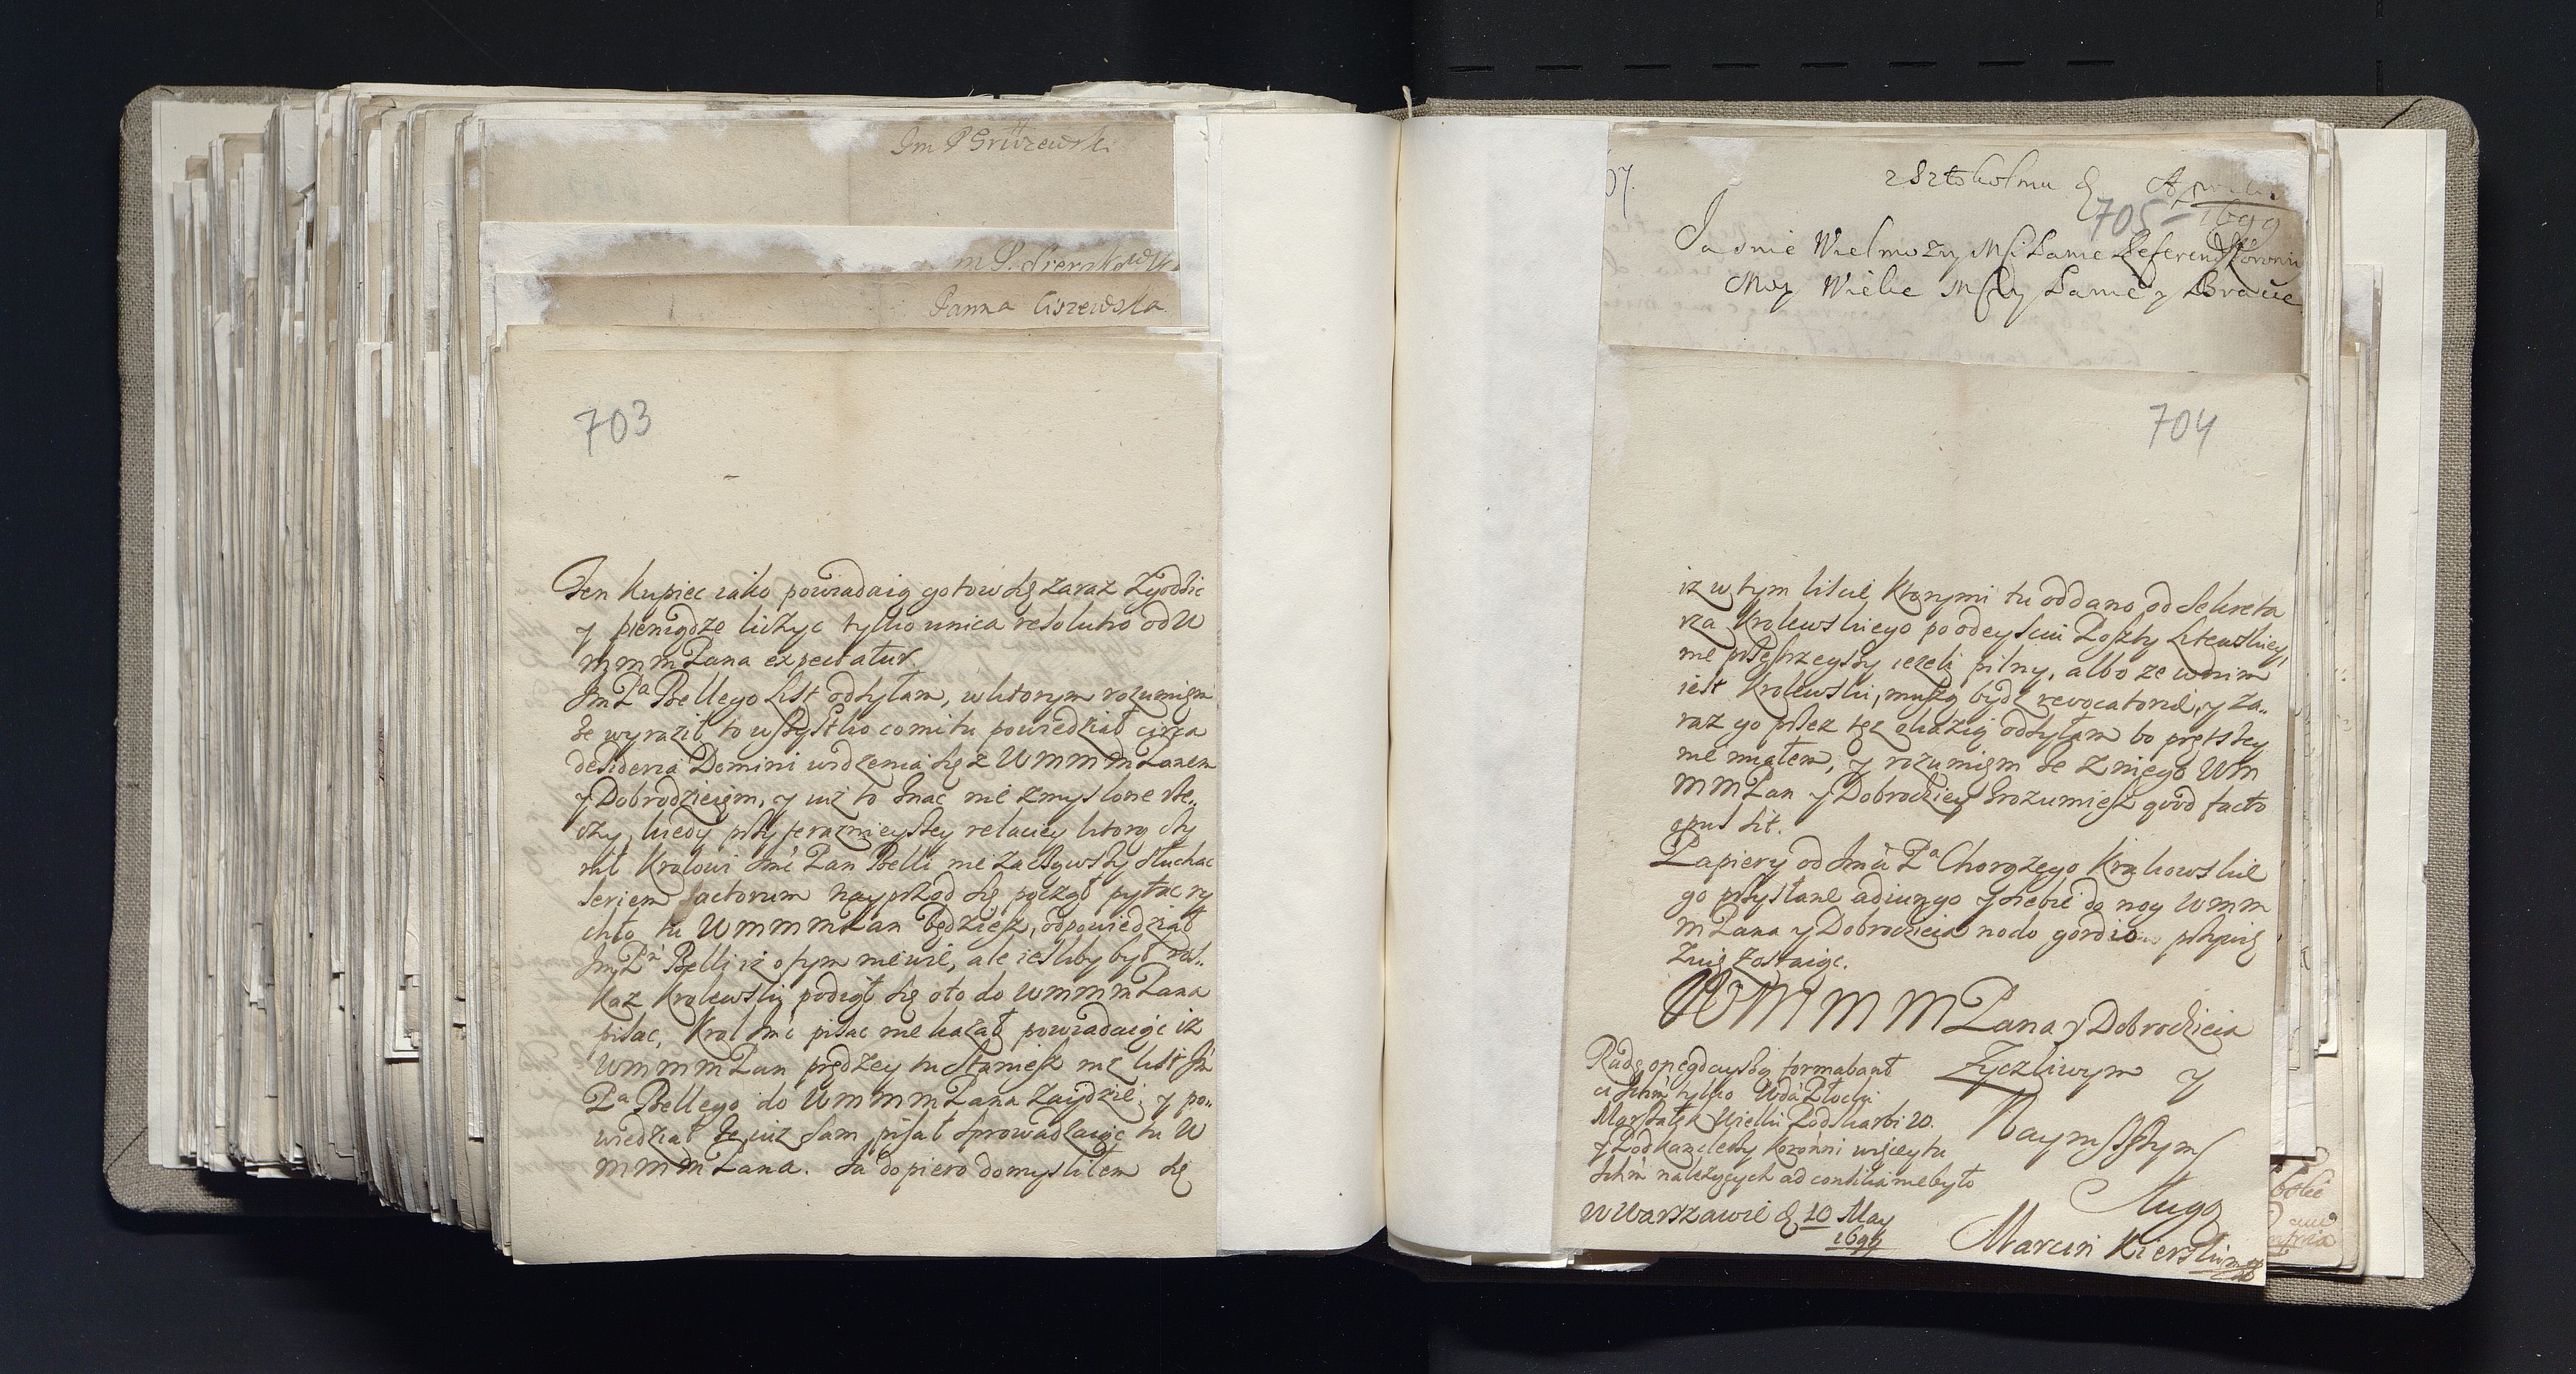 Im P Gruzewski
m P. Kierskow
Panna Ciszewska
703
Ten kupiec iako powiadaią gotow się zaraz zgodzic
y pieniądze liczyc tylko unica resolutio od W
M M M Pana expectatur.
Jm Pa Bellego list odsyłam, w ktorym rozumięm
że wyraził to wszystko co mi tu powiedział circa
desideria Domini widzenia się z W M M M Panem
y Dobrodzieięm, y iuż to znac nie zmyslone rze„
czy, kiedy przy terazniejszey relaciey ktorą czy
nił Krolowi Jmć Pan Belli nie zacząwszy słuchac
seriem factorum nayprzod się począł pytac ry
chło tu W M M M Pan będziesz, odpowiedział
Jm Pn Belli iż o tym nie wie, ale iesliby był roz„
kaz Krolewski podiął się oto do W M M M Pana
pisac, Krol Jmć pisac nie kazał powiadaiąc iż
W M M M Pan prędzey tu staniesz niż list Jm
Pa Bellego do W M M M Pana zaydzie; y po„
wiedział że iuż sam pisał sprowadzaiąc tu W
M M M Pana. Ja dopiero domysliłem się
07.
z Sztokolmu d Aprilis
705
1699
Jasnie Wielmozny Msci Panie Referend Koronny
Moy Wielce Mscy Panie y Bracie
704
iz w tym liscie ktorymi tu oddano od Sekreta
rza Krolewskiego po odeysciu Poszty Litewskiey,
nie przeyrzeyszy iezeli pilny, albo ze w nim
iest Krolewski, muszą bydz revocatoriae, y za„
raz go przez tęż okazią odsyłam bo prętszey
nie miałem, y rozumięm że z niego W M
M M Pan y Dobrodziey zrozumiesz quod facto
opus sit.
Papiery od Jmci Pa Chorążego Krakowskie
go przysłane adiungo y siebie do nog W M M
M Pana y Dobrodzieia nodo gordio przywię
zuię zostaiąc.
W M M M M Pana y Dobrodzieia
Zyczliwym y
Naynisszym
Sługą
Marcin Kierski
Radę formabant
ci Ichm tylko Wda Płocki
Marszałek Wielki Podskarbi W.
y Podkanclerzy Koronni więcey tu
Ichm należących ad consilia nie było
W Warszawie d 10 May
1699